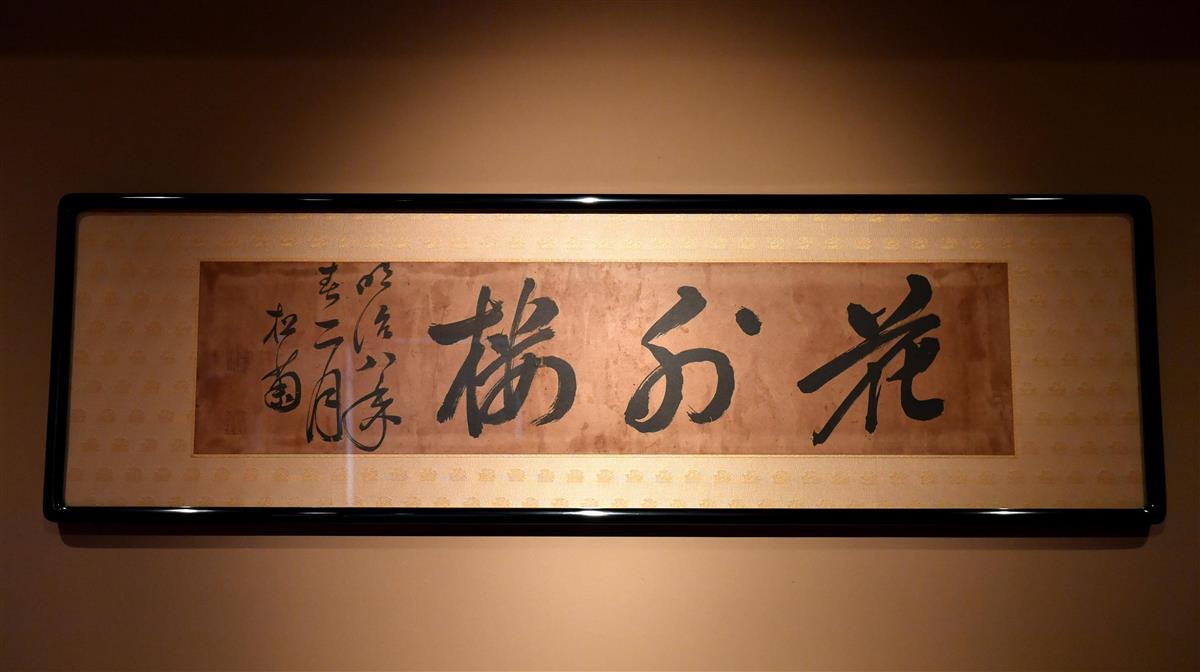 花外楼
明治八年
春二月
松菊